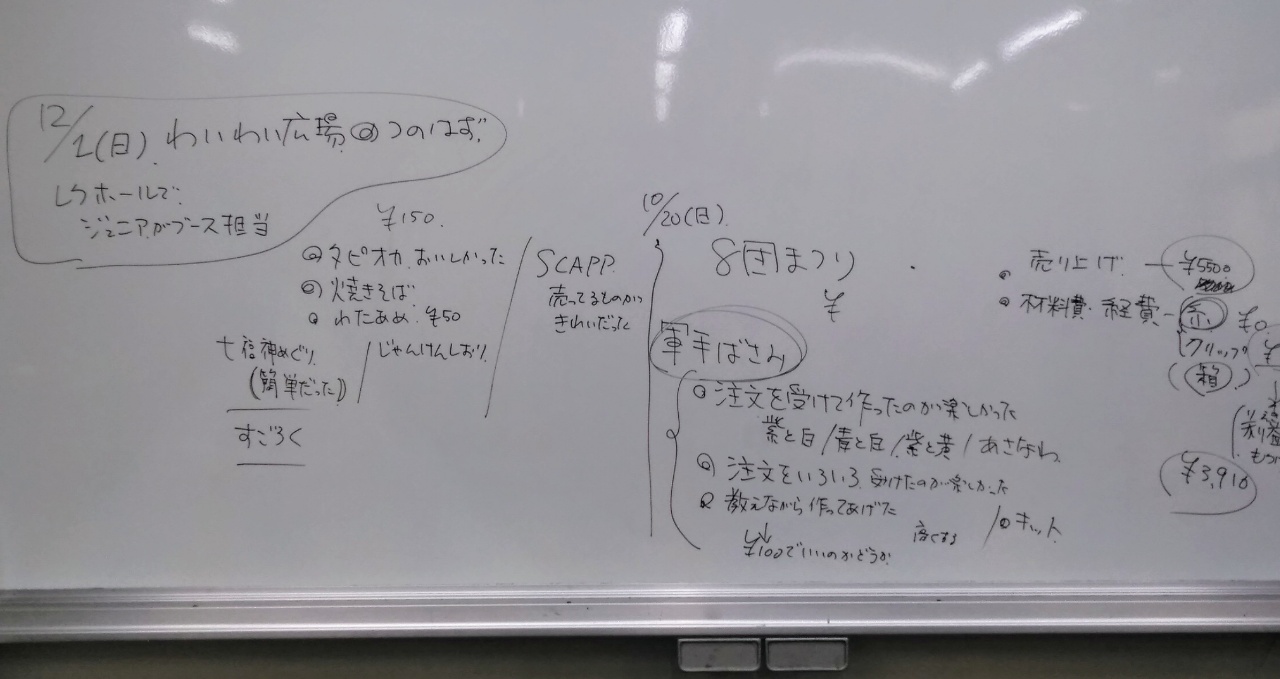 12/1(日) わいわい広場@つのはず
レクホールで
ジュニアがブース担当
¥150
タピオカ おいしかった
焼きそば
わたあめ ¥50
七福神めぐり
(簡単だった)
/じゃんけんしおり
すごろく
SCAPP
売ってるものが
きれいだった
10/20(日)
8団まつり
¥
軍手ばさみ
注文を受けて作ったのが楽しかった
紫と白/青と白/紫と黄/あさなわ
注文をいろいろ受けたのが楽しかった
教えながら作ってあげた
¥100でいいのかどうか
高くする
/キット
売り上げ ― ¥5500
材料費・経費 ― 糸 ¥0
クリップ
(箱)
¥3,910